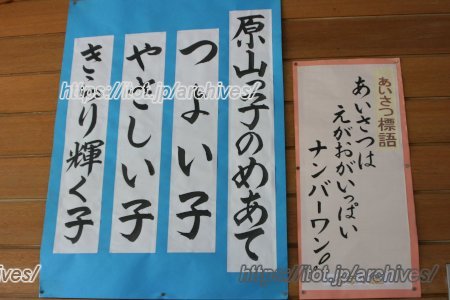 原山っ子のめあて
つよい子
やさしい子
きらり輝く子
あいさつ標語
あいさつは
えがおがいっぱい
ナンバーワン。
https://itot.jp/archives/
https://itot.jp/archives/
hives/
https://itot.jp/archives/